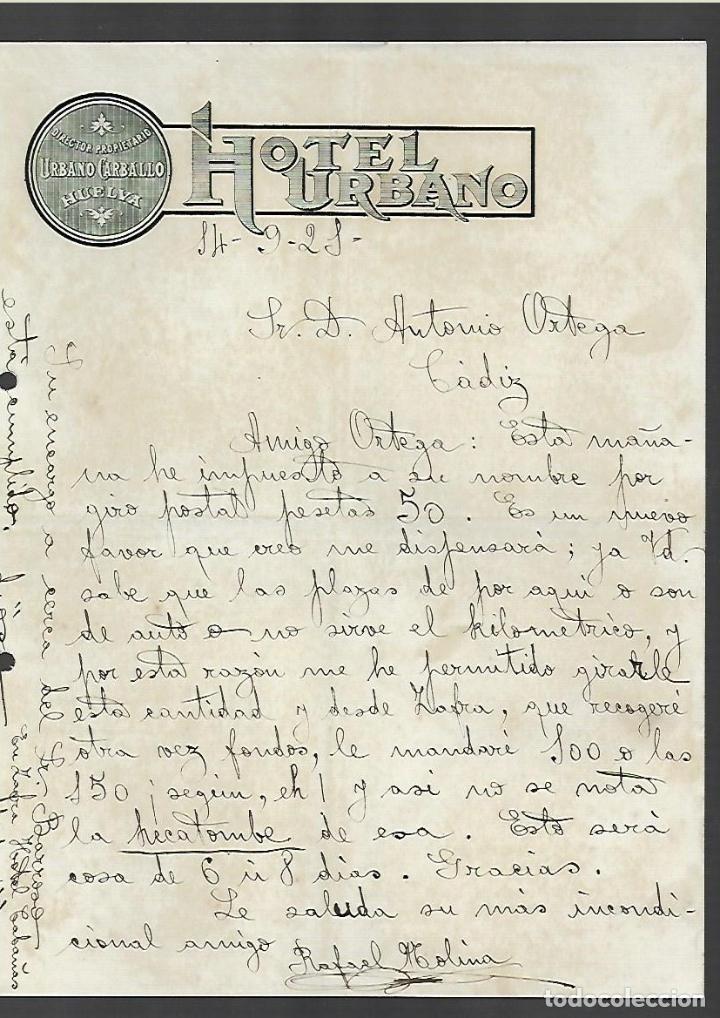 DIRECTOR PROPIETARIO
URBANO CARBALLO
HUELVA
HOTEL
URBANO
14-9-21-
Sr. D. Antonio Ortega
Cádiz
Amigo Ortega: Esta maña-
na he impuesto a su nombre por
giro postal pesetas 50. Es un nuevo
favor que creo me dispensará; ya Vd.
sabe que las plazas de por aquí o son
de auto o no sirve el kilometrico, y
por esta razón me he permitido girarle
esta cantidad y desde Zafra, que recogeré
otra vez fondos, le mandaré 100 o las
150 ¡según, eh! y asi no se nota
la hecatombe de esa. Esto será
cosa de 6 u 8 dias. Gracias.
Le saluda su más incondi-
cional amigo
Rafael Molina
Su encargo a cerca del Sr. Barroso
está cumplido.
En Zafra Hotel Cabañas
todocoleccion